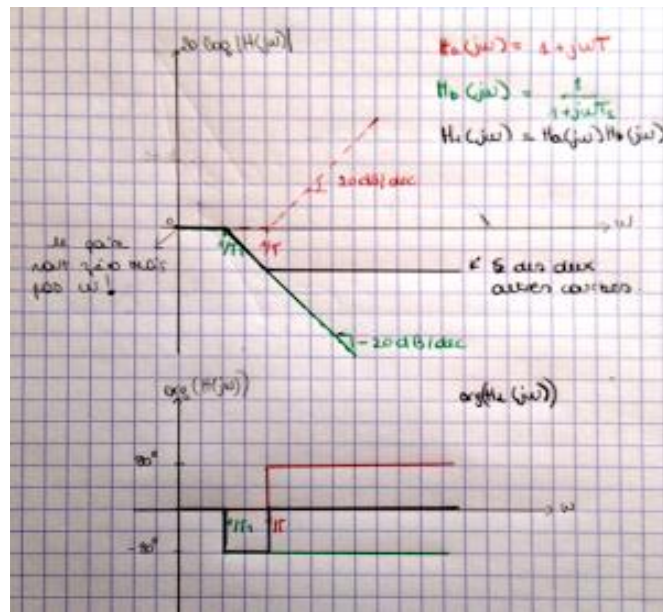 20 log |H(jω)|
Ha(jω) = 1+jωT
Hb(jω) = 1/(1+jωT₁)
H₁(jω) = Ha(jω)Hb(jω)
20dB/dec
0
ω
1/T₁
1/T
le gain
vaut zéro mais
pas ω!
Σ des deux
autres courbes.
-20dB/dec
arg(H(jω))
arg(H₁(jω))
90°
ω
1/T₁
1/T
-90°